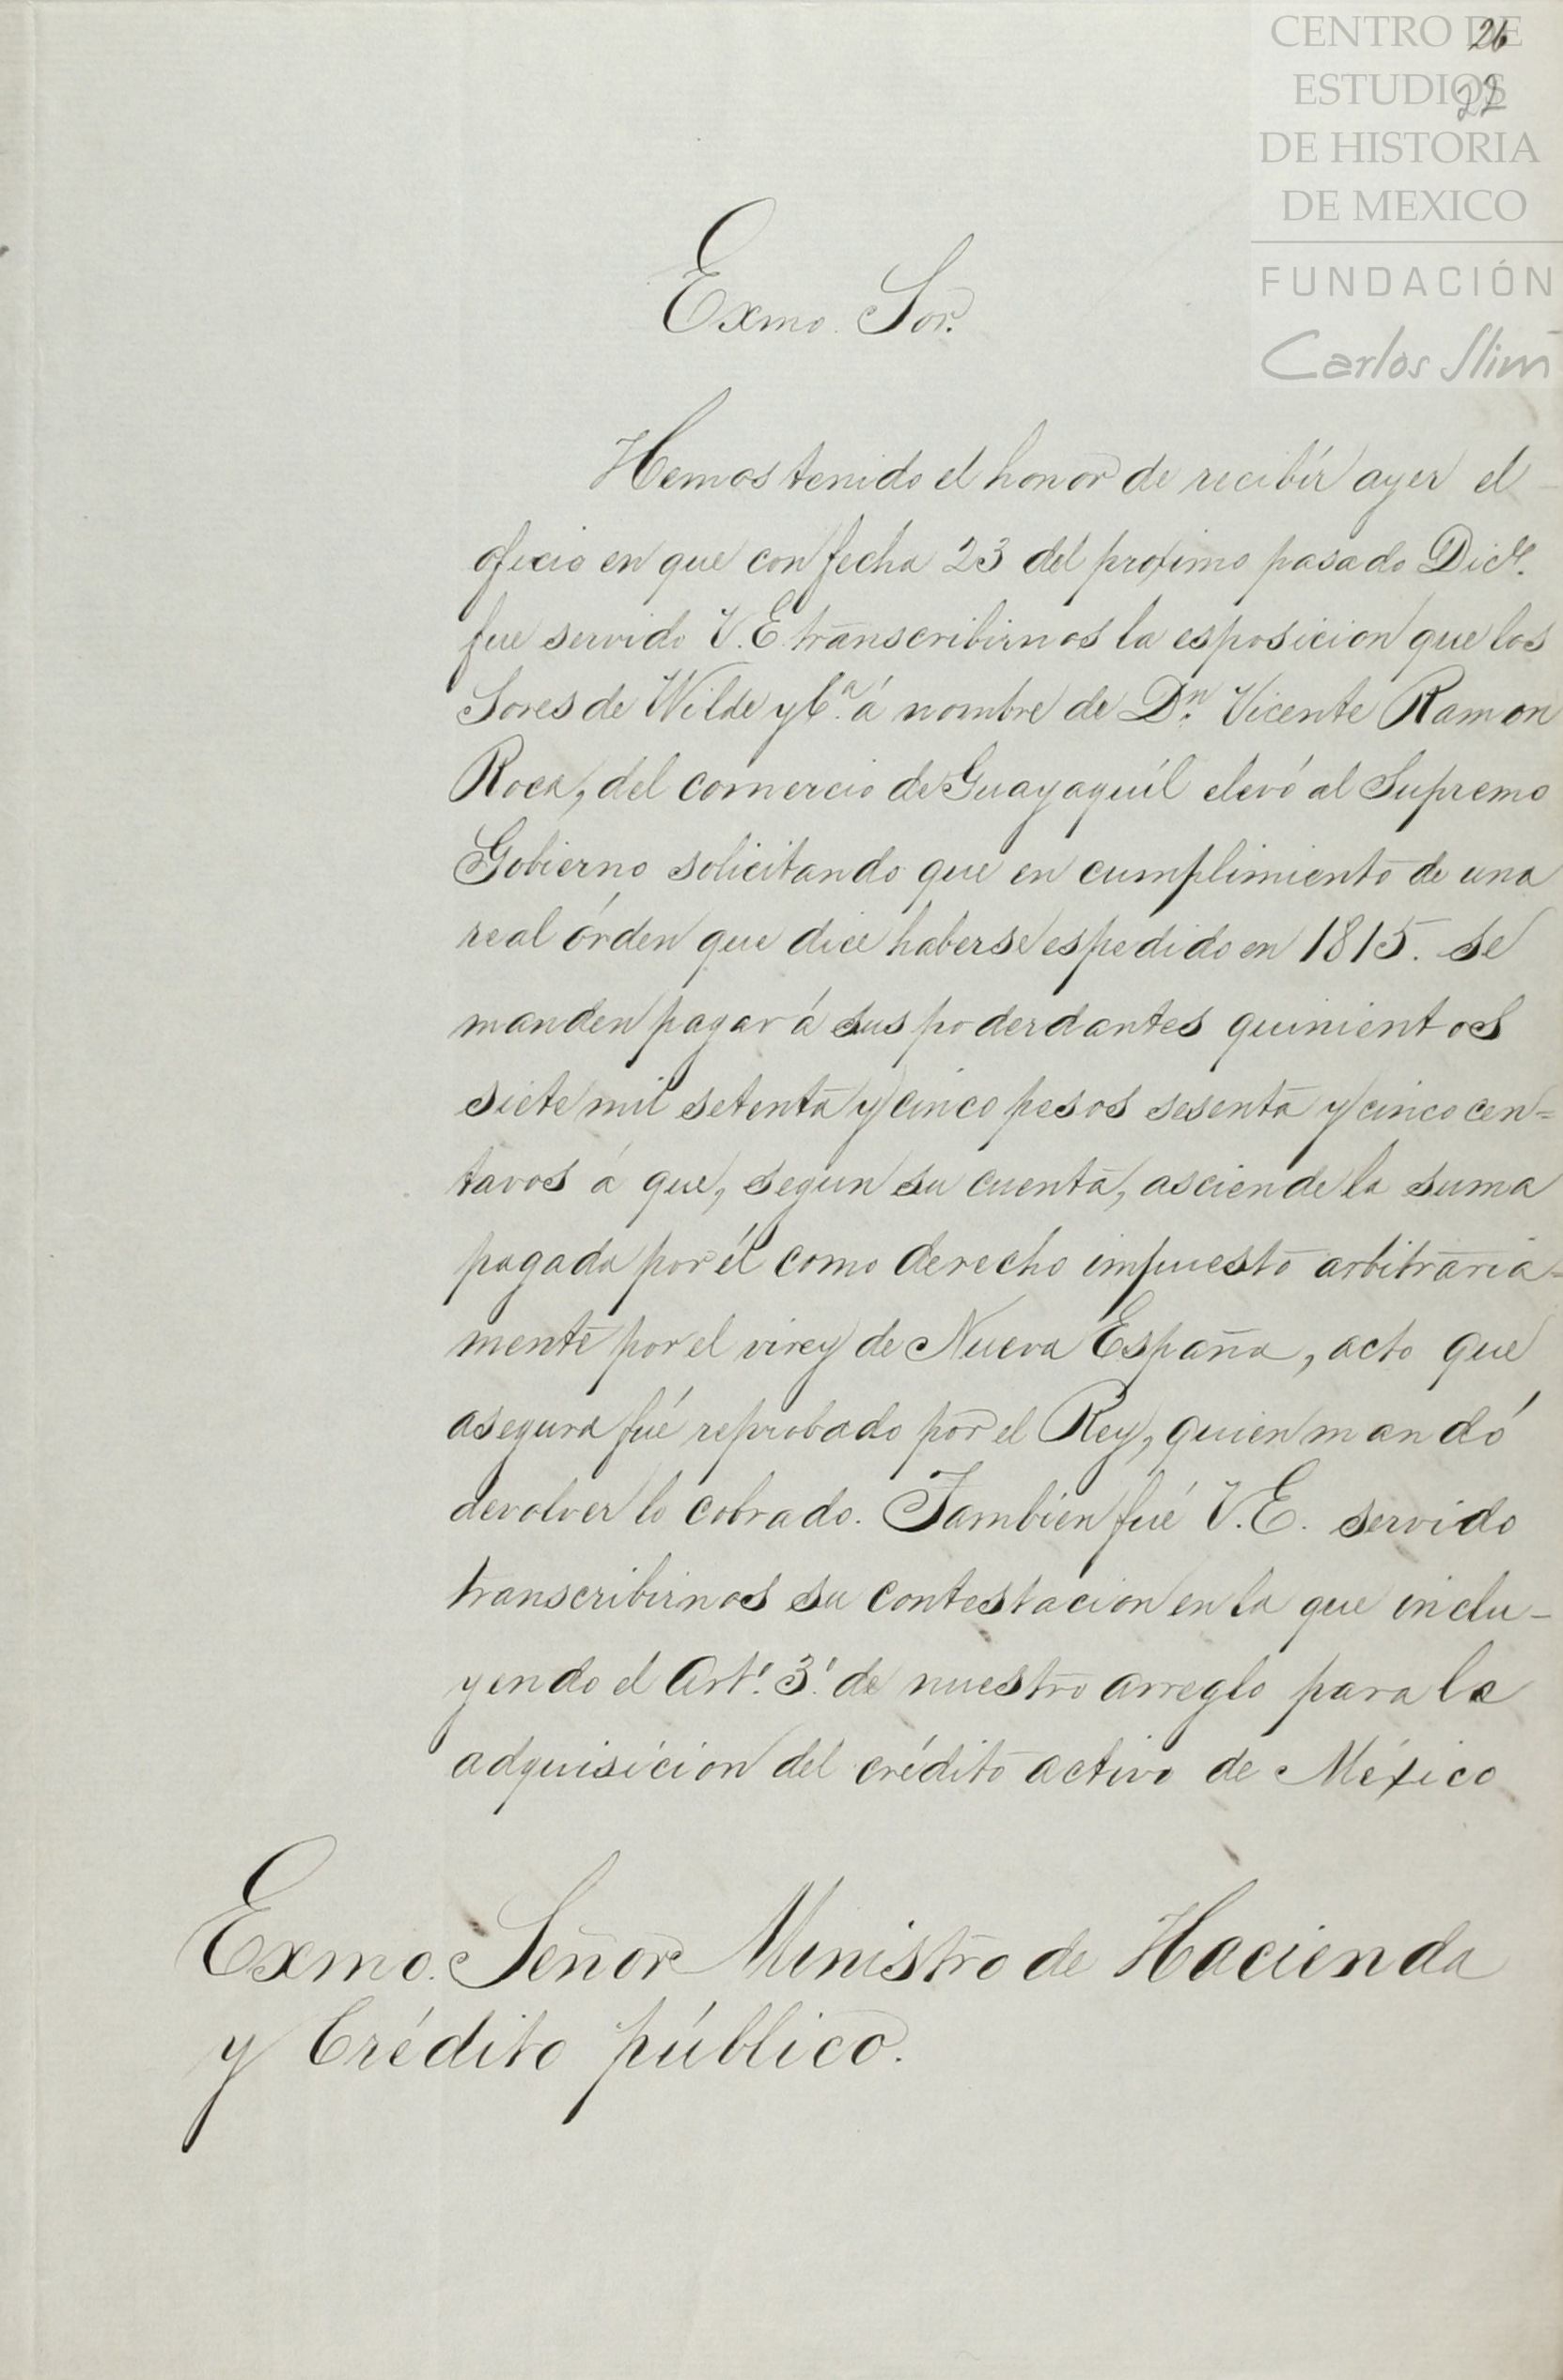 CENTRO DE
ESTUDIOS
DE HISTORIA
DE MEXICO
FUNDACIÓN
Carlos Slim
26
22
Exmo. Sor.
Hemos tenido el honor de recibir ayer el
oficio en que con fecha 23 del proximo pasado Dice.
fue servido V.E. transcribirnos la esposicion que los
Sores de Wilde y Ca. á nombre de Dn. Vicente Ramon
Roca, del comercio de Guayaquíl elevó al Supremo
Gobierno solicitando que en cumplimiento de una
real órden que dice haberse espedido en 1815. se
manden pagar á sus poderdantes quinientos
siete mil setenta y cinco pesos sesenta y cinco cen=
tavos á que, segun su cuenta, asciende la suma
pagada por él como derecho impuesto arbitraria=
mente por el virey de Nueva España, acto que
asegura fué reprobado por el Rey, quien mandó
devolver lo cobrado. Tambien fué V.E. servido
transcribirnos su contestacion en la que inclu-
yendo el Art. 3. de nuestro arreglo para la
adquisicion del crédito activo de México
Exmo. Señor Ministro de Hacienda
y Crédito público.